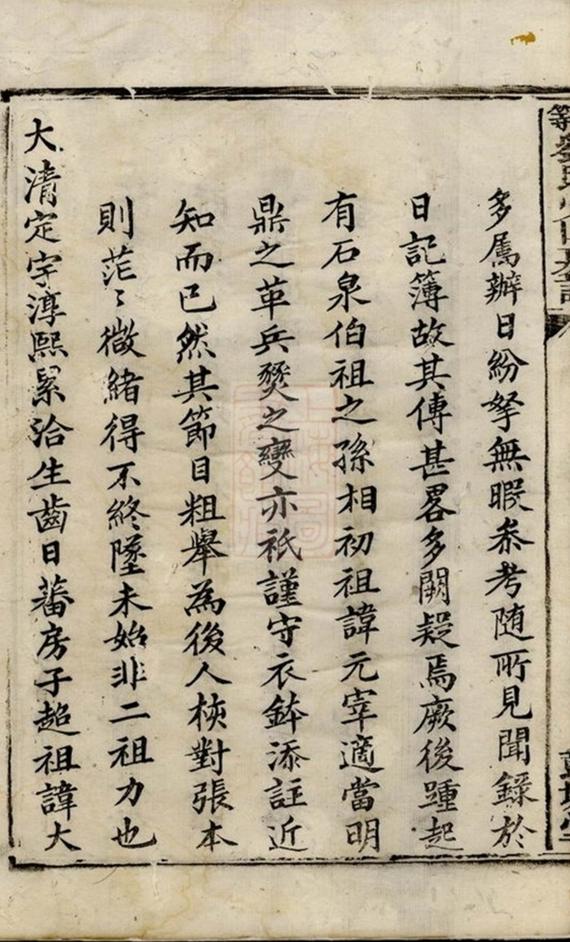 多屬辦日紛拏無暇叅考随所見聞錄於
日記簿故其傳甚畧多闕疑焉厥後踵起
有石泉伯祖之孫相初祖諱元宰適當明
鼎之革兵燹之變亦祇謹守衣鉢添註近
知而已然其節目粗舉為後人挾對張本
則茫〻微緒得不終墜未始非二祖力也
大清定宇淳熈累洽生齒日蕃房子超祖諱大